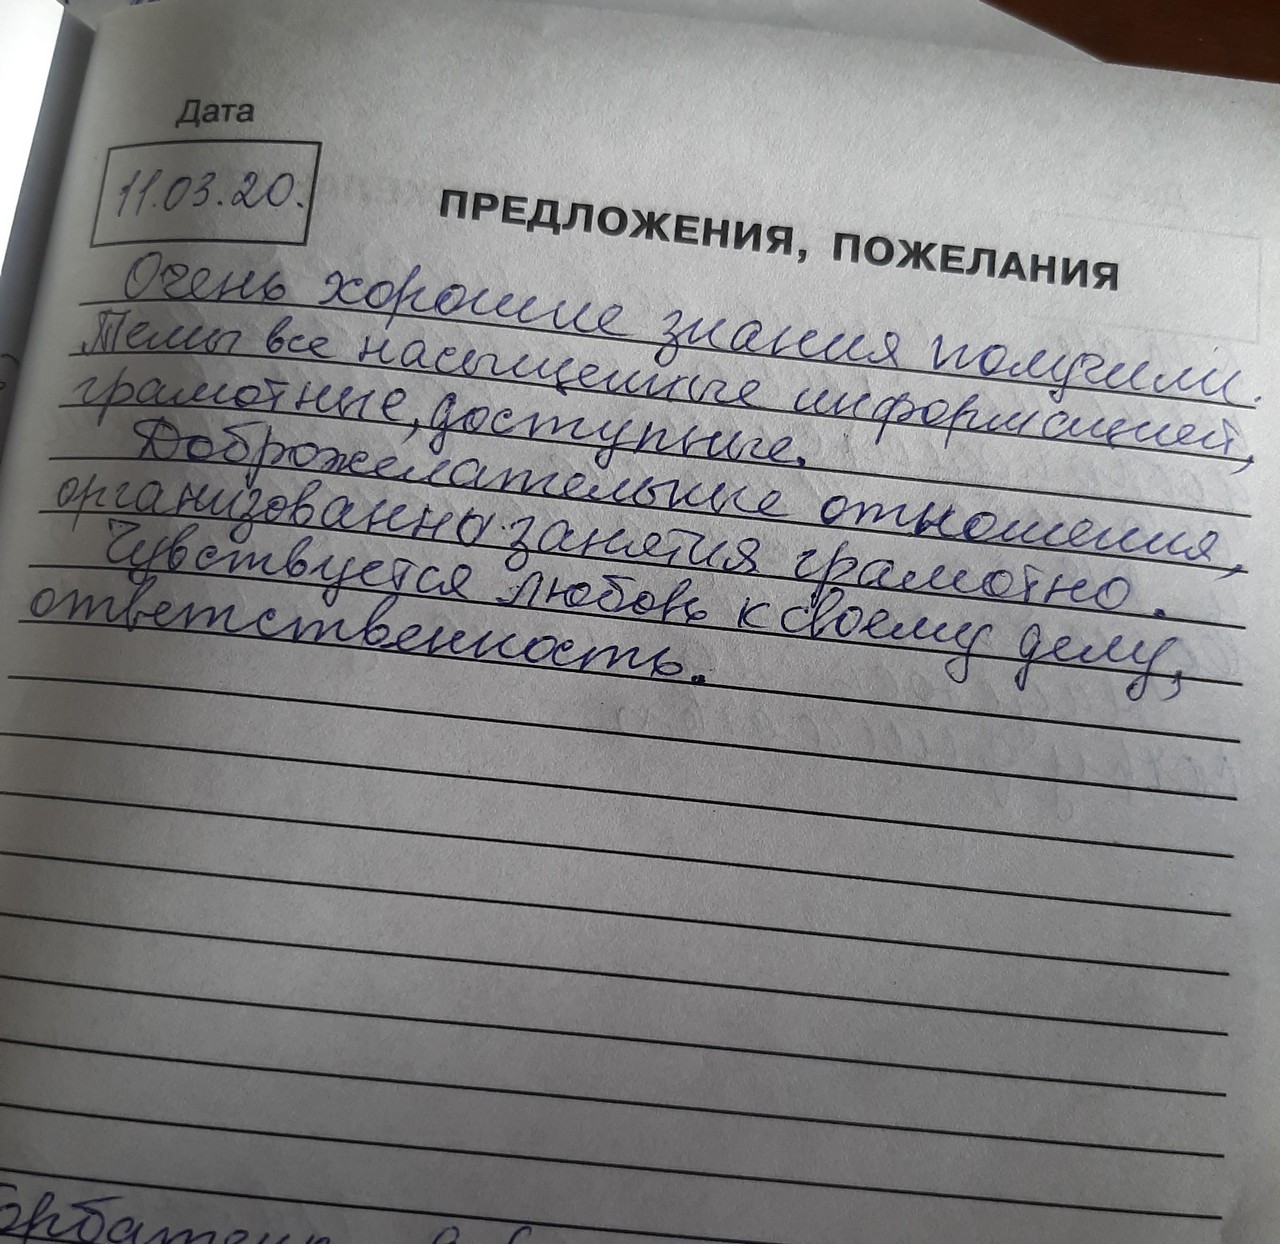 Дата
11.03.20.
ПРЕДЛОЖЕНИЯ, ПОЖЕЛАНИЯ
Очень хорошие знания получили.
Темы все насыщенные информацией,
грамотные, доступные.
Доброжелательные отношения,
организованны занятия грамотно.
Чувствуется любовь к своему делу,
ответственность.